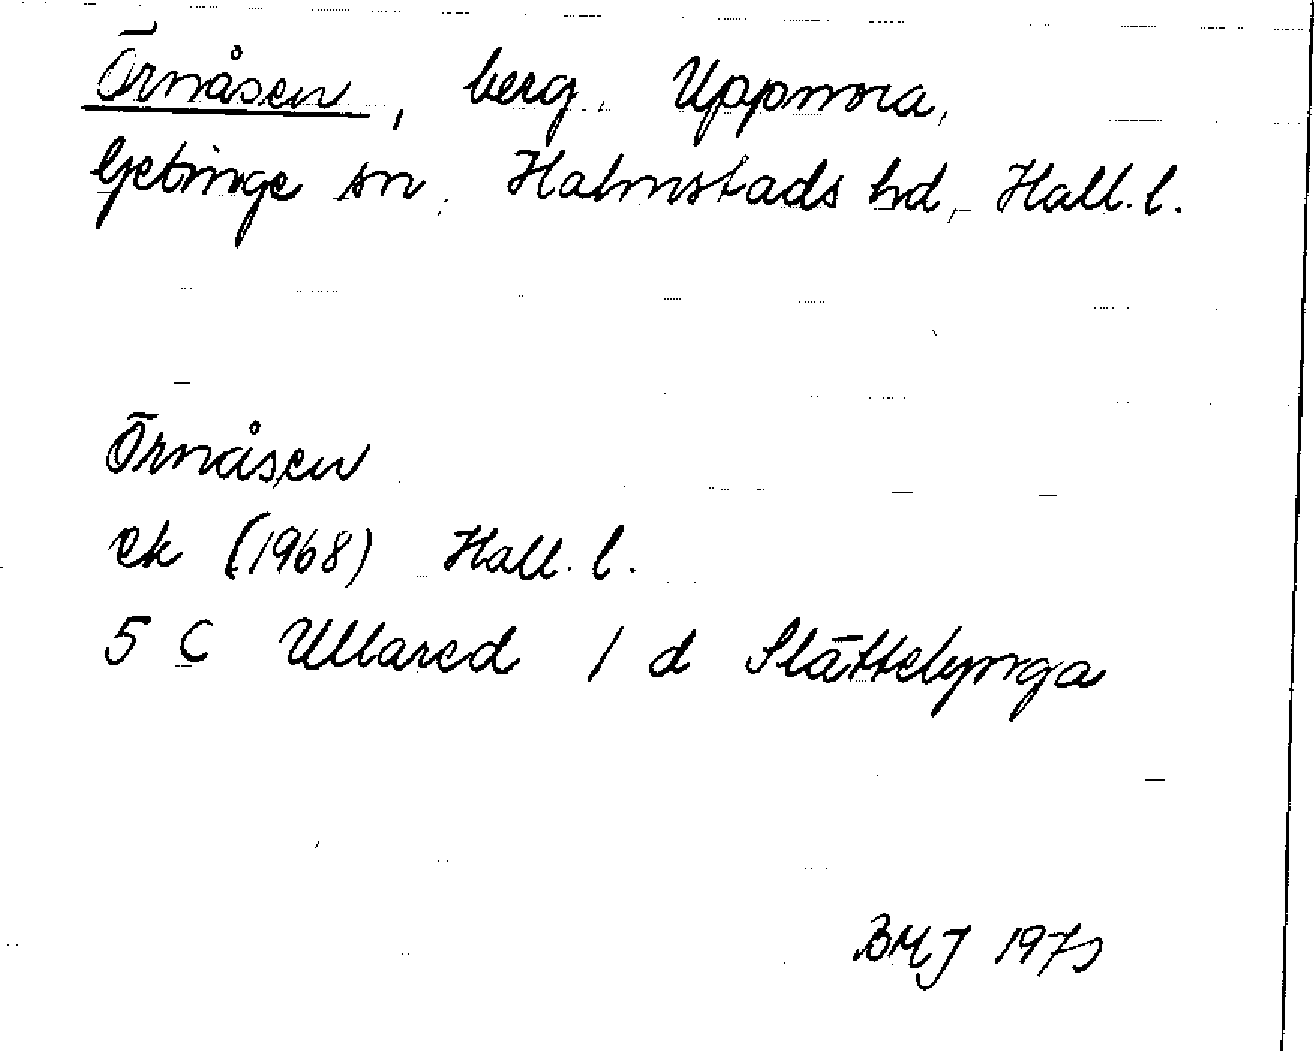 Örnåsen, berg. Uppmora,
Getinge sn. Halmstads hd, Hall. l.
Örnåsen
ek (1968) Hall. l.
5 C Ullared 1 d Slättelynga
BMJ